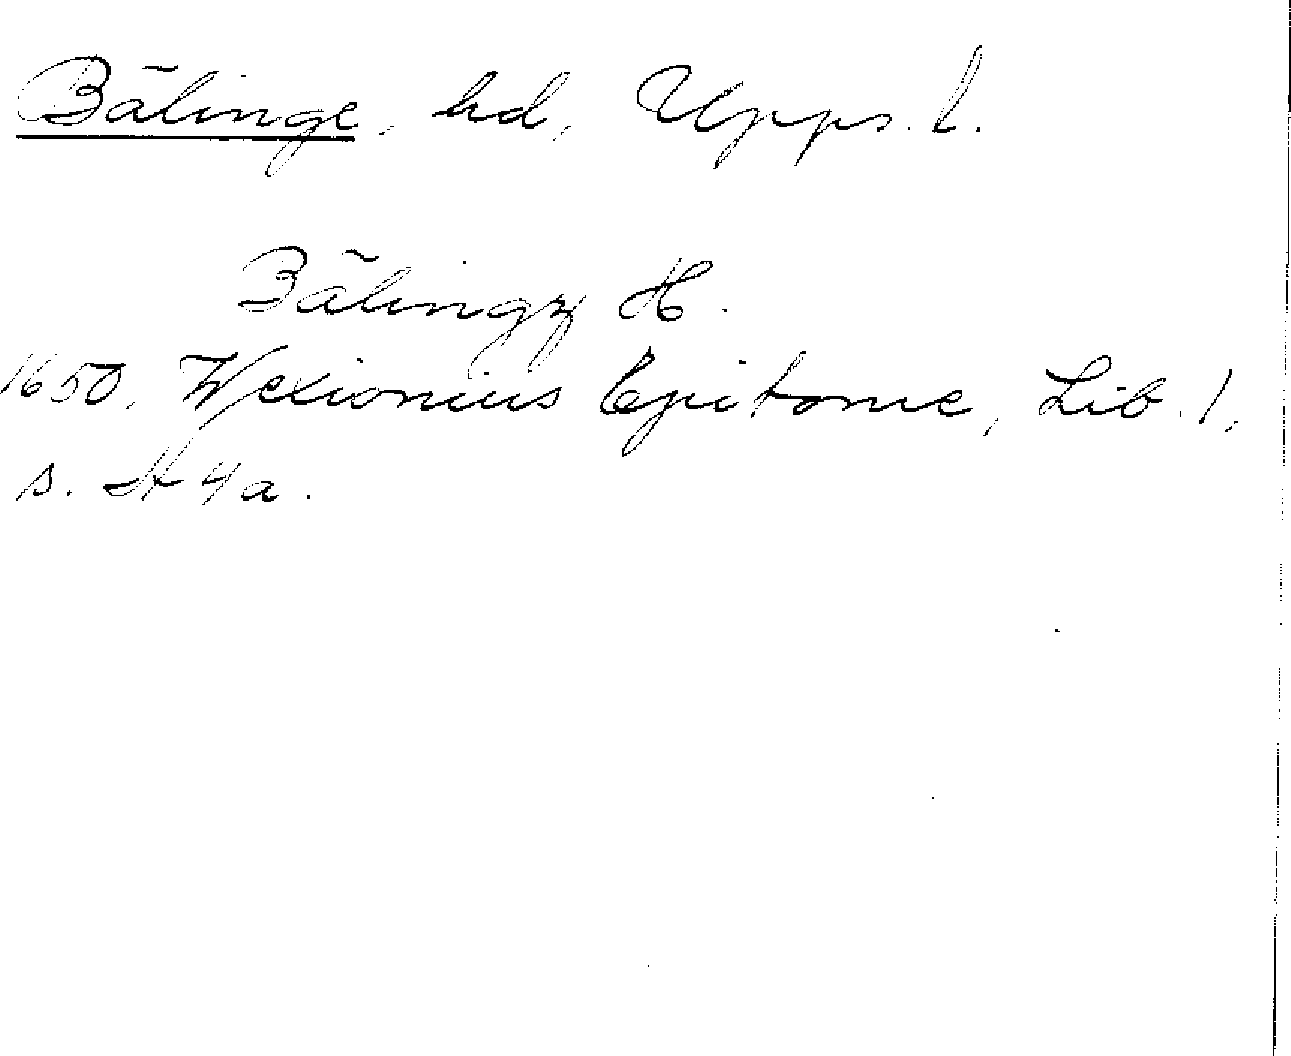 Bälinge, hd, Upps. l.
Bälingz H.
1650, Wexionius Epitome, Lib. 1,
s. H 4a.